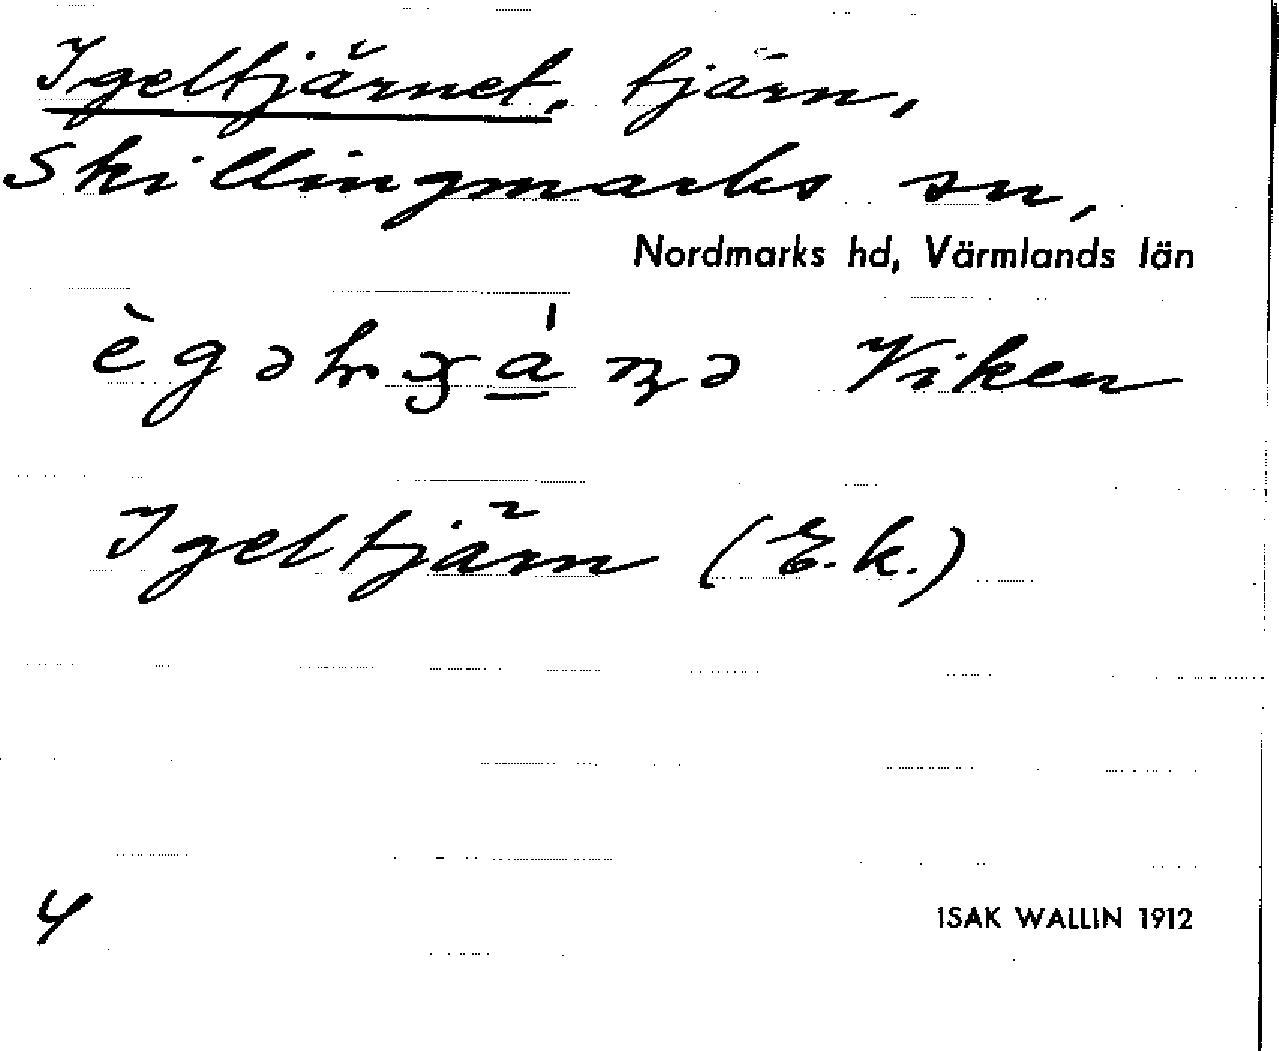 Igeltjärnet, tjärn,
Skillingmarks sn,
Nordmarks hd, Värmlands län
Viken
Igeltjärn (E.k.)
4
ISAK WALLIN 1912